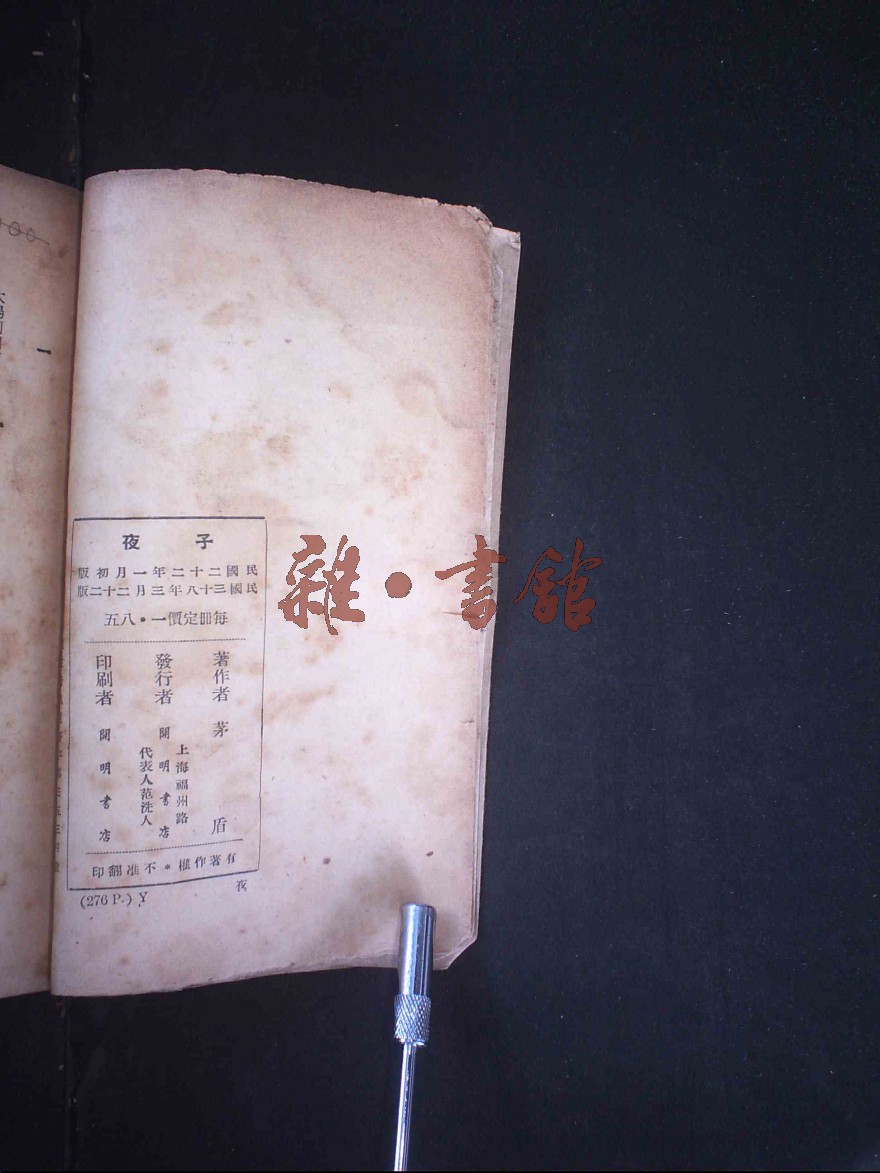 子夜
民國二十二年一月初版
民國三十八年三月二十二版
每冊定價一•八五
著作者 茅盾
發行者 上海福州路 開明書店 代表人范洗人
印刷者 開明書店
有著作權*不准翻印
(276 P.) Y
夜
雜•書館
一